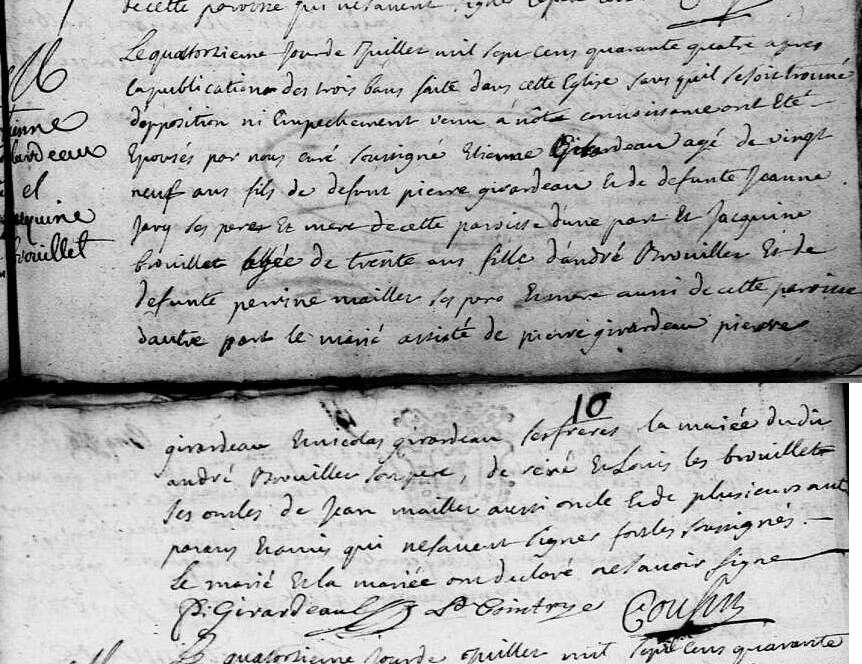 decette paroisse qui ne savent signer
M
Etienne
Girardeau
et
Jacquine
brouillet
Le quatorsieme jour de Juillet mil sept cens quarante quatre apres
la publication des trois bans faite dans cette Eglise sans quil se soit trouvé
dopposition ni Empechement venu a nôtre connoissance ont Eté
Epousés par nous curé soussigné Etienne Girardeau agé de vingt
neuf ans fils de defunt pierre girardeau Et de defunte Jeanne
Javy ses pere Et mere de cette paroisse d'une part Et Jacquine
brouillet agée de trente ans fille d'andré Brouillet Et de
defunte perrine mailler ses pere Et mere aussi de cette paroisse
dautre part le marié assisté de pierre girardeau pierre
10
girardeau Et nicolas girardeau ses freres la mariée du dit
andré Brouillet son pere, de réné Et Louis les brouillet
ses oncles de Jean mailler aussi oncle Et de plusieurs aut
parans Et amis qui ne savent signer fors les soussignés.
Le marié Et la mariée ont declaré ne savoir signe
P: Girardeau Cousin
Le quatorsieme jour de Juillet mil sept cens quarante